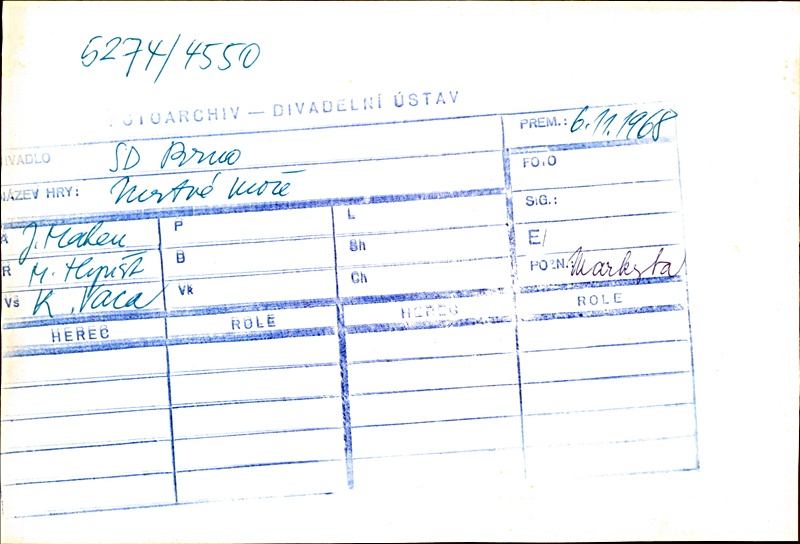 5274/4550
FOTOARCHIV — DIVADELNÍ ÚSTAV
DIVADLO SD Brno
PREM.: 6.11.1968
NÁZEV HRY: Mrtvé moře
FOTO
SIG.:
A J. Mahen P L
E/
R M. Hynšt B Sh
POZN. Markyta
Vš K. Vaca Vk Ch
HEREC ROLE HEREC ROLE